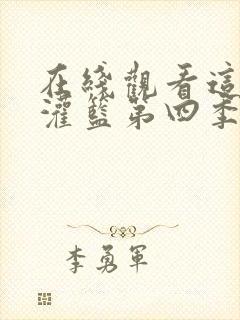 在綫觀看這
灌籃第四季
李勇軍